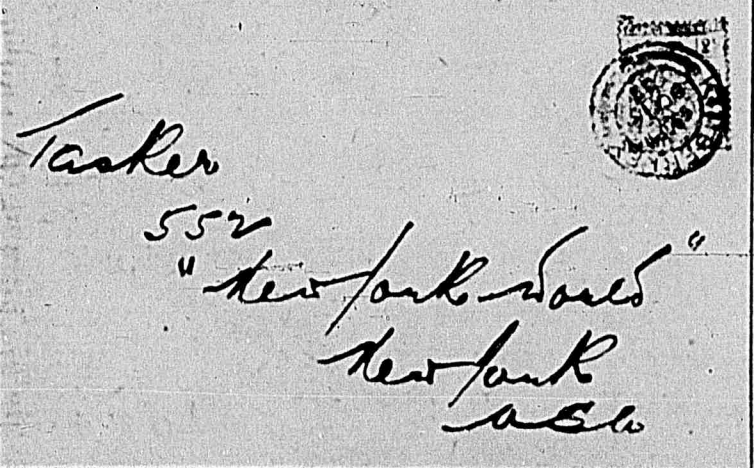 Tasker
552
"New York World"
New York